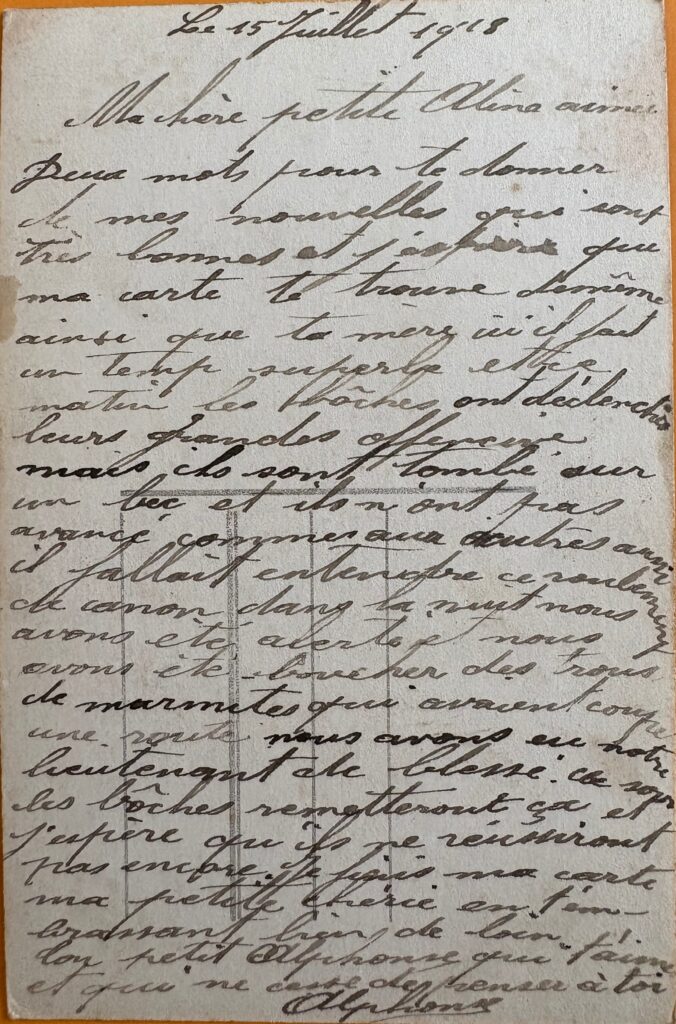 Le 15 Juillet 1918
Ma chère petite Aline aimée
Deux mots pour te donner
de mes nouvelles qui sont
très bonnes et j'espère que
ma carte te trouve de même
ainsi que ta mère ici il fait
un temp superbe et ce
matin les bôches ont déclenché
leurs grandes offencive
mais ils sont tombé sur
un bec et ils n'ont pas
avancé comme aux autres aussi
il fallait entendre ce roulement
de canon dans la nuit nous
avons été alerté nous
avons été boucher des trous
de marmites qui avaient coupé
une route nous avons eu notre
lieutenant de blessé. Ce soir
les bôches remetteront ça et
j'espère qu'ils ne réussiront
pas encore. Je finis ma carte
ma petite chérie en t'em-
brassant bien de loin
ton petit Alphonse qui t'aime
et qui ne cesse de penser à toi
Alphonse